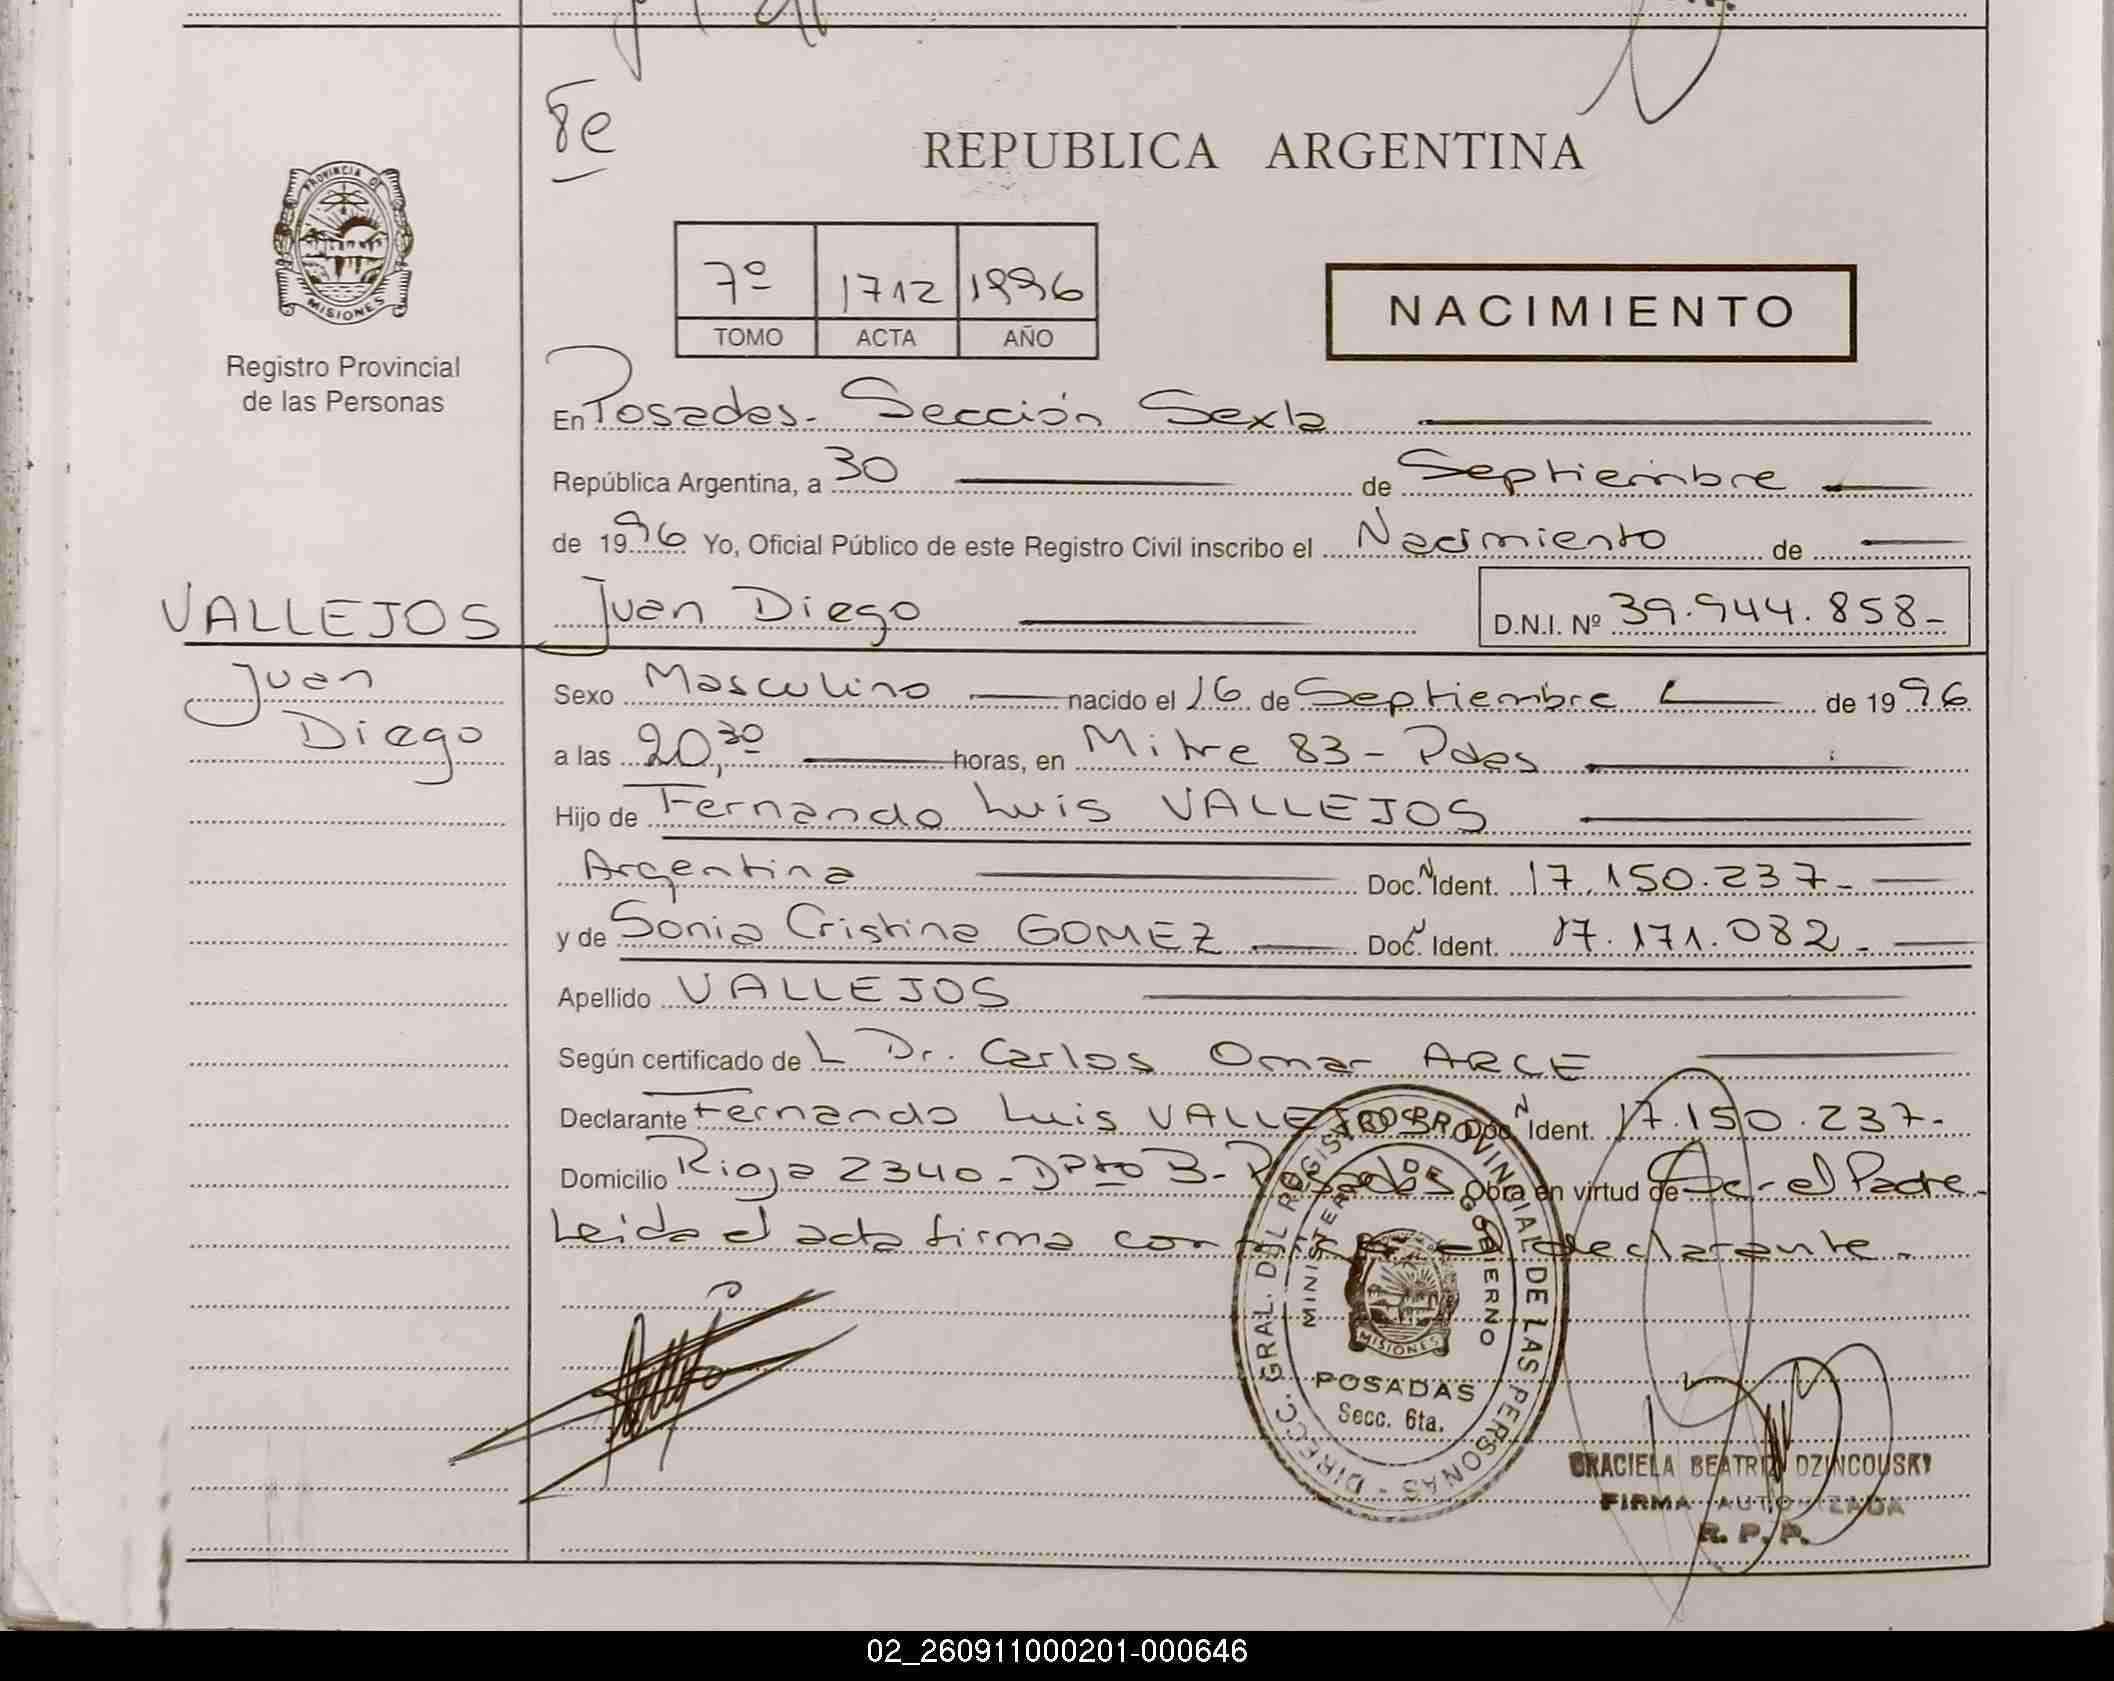 8e
REPUBLICA ARGENTINA
PROVINCIA DE
MISIONES
Registro Provincial
de las Personas
7º 1712 1996
TOMO ACTA AÑO
NACIMIENTO
En Posadas - Sección Sexta
República Argentina, a 30 de Septiembre
de 1996 Yo, Oficial Público de este Registro Civil inscribo el Nacimiento de
VALLEJOS
Juan Diego D.N.I. Nº 39.944.858-
Juan
Diego
Sexo Masculino nacido el 16 de Septiembre de 1996
a las 20,30 horas, en Mitre 83 - Pdas
Hijo de Fernando Luis VALLEJOS
Argentina Doc. N Ident. 17.150.237-
y de Sonia Cristina GOMEZ Doc. N Ident. 17.171.082-
Apellido VALLEJOS
Según certificado de L Dr. Carlos Omar ARCE
Declarante Fernando Luis VALLEJOS Doc. N Ident. 17.150.237-
Domicilio Rioja 2340 - Dpto B - Posadas Obra en virtud de Ser el Padre-
Leida el acta firma declarante.
DIRECC. GRAL. DEL REGISTRO PROVINCIAL DE LAS PERSONAS -
MINISTERIO DE GOBIERNO
MISIONES
POSADAS
Secc. 6ta.
GRACIELA BEATRIZ DZINCOUSKI
FIRMA AUTORIZADA
R. P. P.
02_260911000201-000646